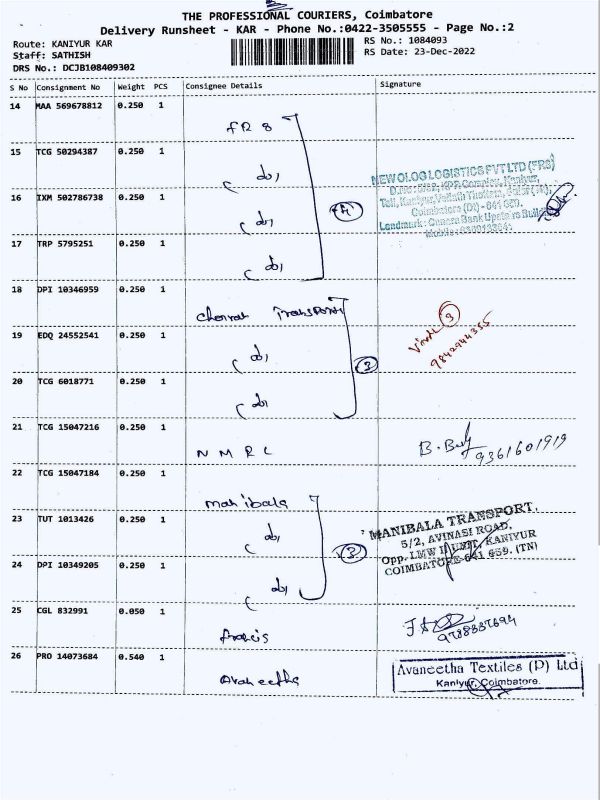 THE PROFESSIONAL COURIERS, Coimbatore
Delivery Runsheet - KAR - Phone No.:0422-3505555 - Page No.:2
Route: KANIYUR KAR
RS No.: 1084093
Staff: SATHISH
RS Date: 23-Dec-2022
DRS No.: DCJB108409302
S No Consignment No Weight PCS Consignee Details Signature
14 MAA 569678812 0.250 1
FRS
15 TCG 50294387 0.250 1
do,
NEWOLOG LOGISTICS PVT LTD (FRS)
16 IXM 502786738 0.250 1
do,
4
Coimbatore (Dt) - 641 659.
Landmark: Canara Bank Upstairs Building
17 TRP 5795251 0.250 1
do,
18 DPI 10346959 0.250 1
Transport
3
19 EDQ 24552541 0.250 1
do,
9842944355
3
20 TCG 6018771 0.250 1
do,
21 TCG 15047216 0.250 1
N M R L
9361601919
22 TCG 15047184 0.250 1
Manibala
23 TUT 1013426 0.250 1
do,
3
MANIBALA TRANSPORT.
5/2, AVINASI ROAD,
Opp. LMW II UNIT, KANIYUR
COIMBATORE-641 659. (TN)
24 DPI 10349205 0.250 1
do,
25 CGL 832991 0.050 1
Francis
26 PRO 14073684 0.540 1
Avaneetha
Avaneetha Textiles (P) Ltd
Kaniyur, Coimbatore.